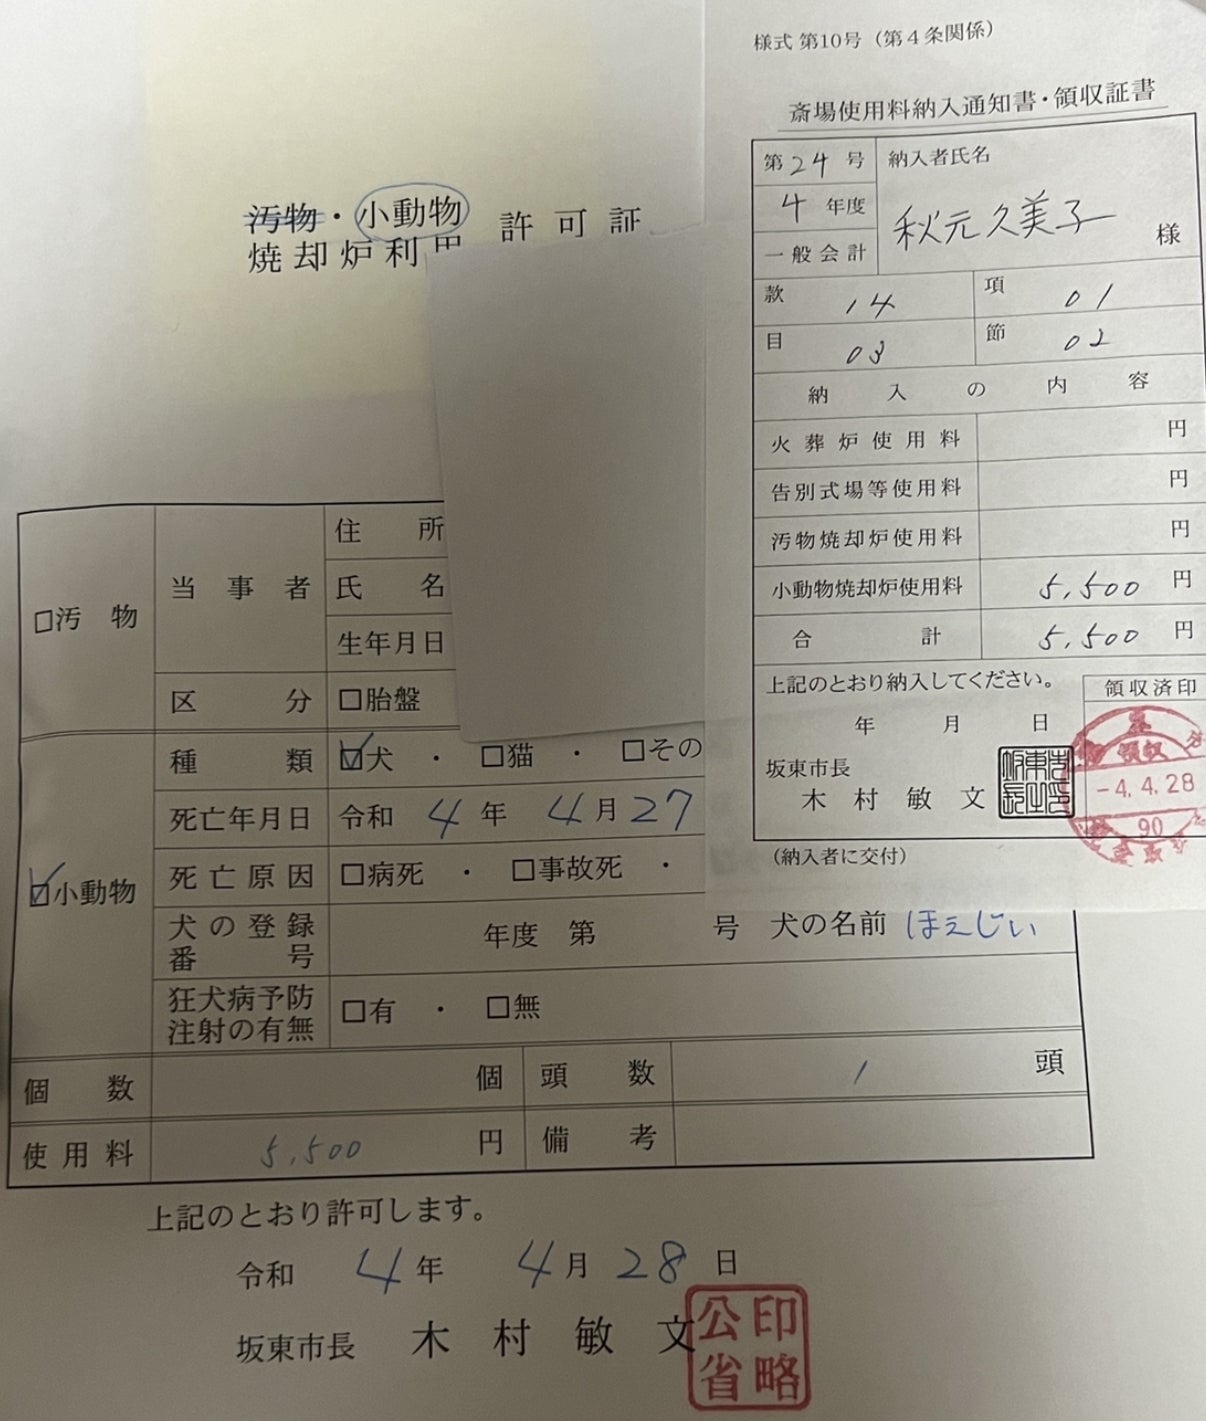 様式 第10号（第４条関係）
斎場使用料納入通知書・領収証書
第24号 納入者氏名
4年度 秋元久美子 様
一般会計
款 14 項 01
目 03 節 02
納入の内容
火葬炉使用料 円
告別式場等使用料 円
汚物焼却炉使用料 円
小動物焼却炉使用料 5,500 円
合計 5,500 円
上記のとおり納入してください。 領収済印
年 月 日
坂東市長
木村敏文
領収
-4.4.28
90
（納入者に交付）
汚物・小動物 許可証
焼却炉利用
□汚物 当事者 住所
氏名
生年月日
区分 □胎盤
☑小動物 種類 ☑犬 ・ □猫 ・ □その
死亡年月日 令和 4年 4月27
死亡原因 □病死 ・ □事故死 ・
犬の登録番号 年度 第 号 犬の名前 ほえじい
狂犬病予防注射の有無 □有 ・ □無
個数 個 頭数 1 頭
使用料 5,500 円 備考
上記のとおり許可します。
令和 4年 4月28日
坂東市長 木村敏文
公印
省略